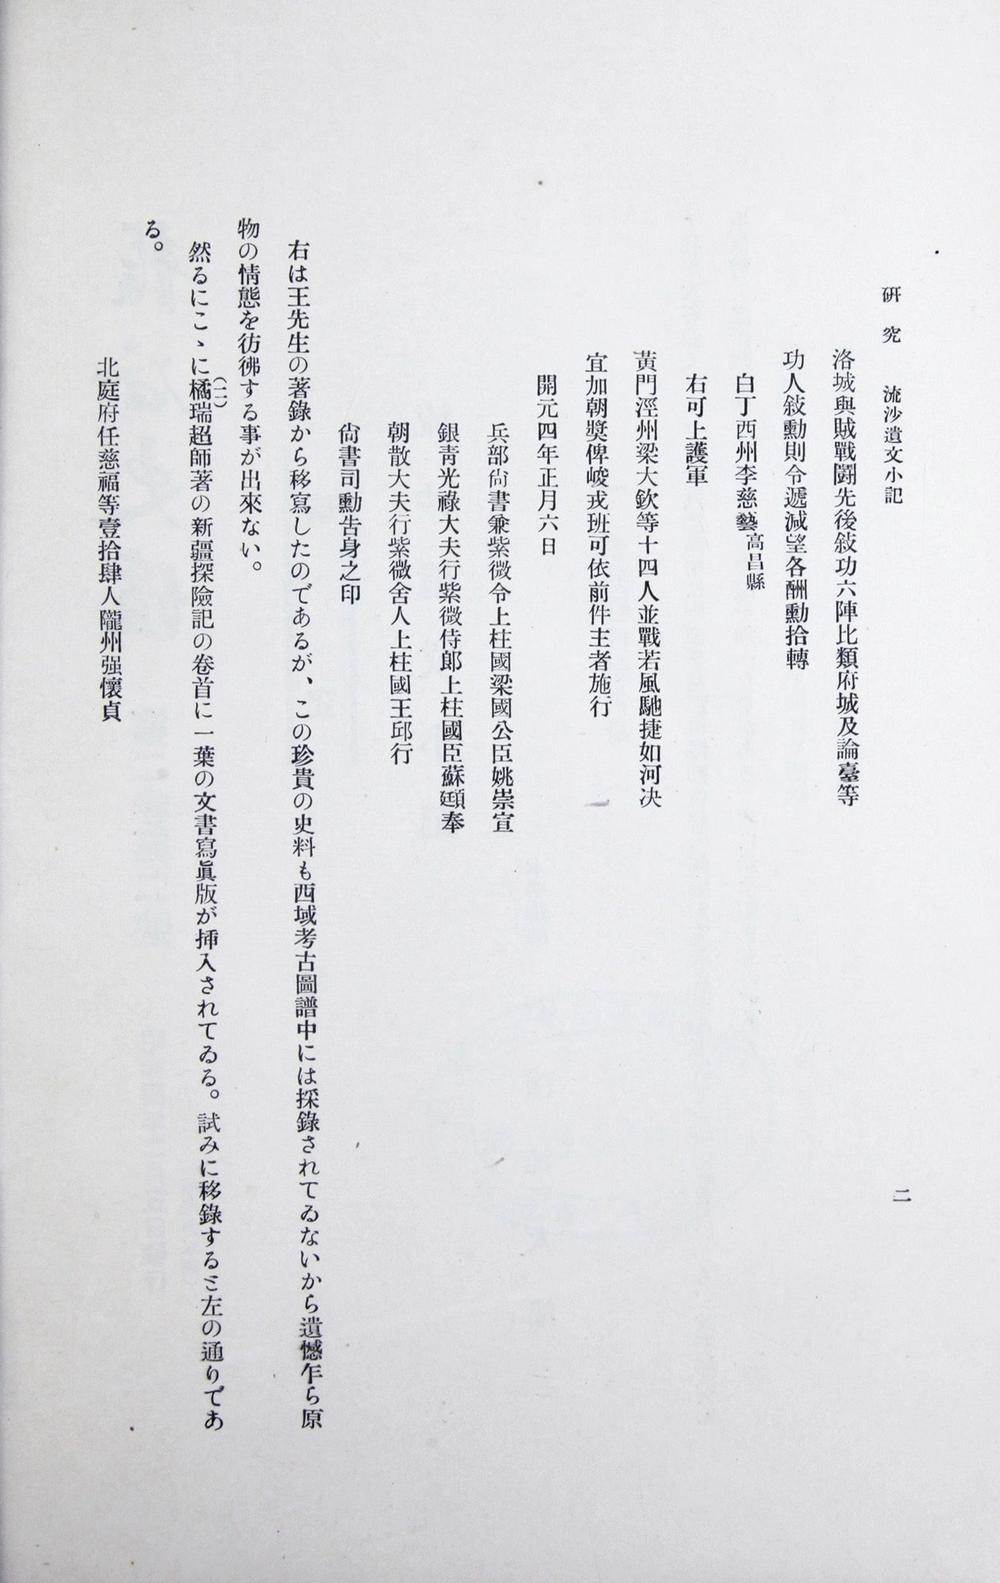 研究　流沙遺文小記
二
洛城與賊戰鬪先後敍功六陣比類府城及論臺等
功人敍勳則令遞減望各酬勳拾轉
白丁西州李慈藝高昌縣
右可上護軍
黃門涇州梁大欽等十四人並戰若風馳捷如河决
宜加朝奬俾峻戎班可依前件主者施行
開元四年正月六日
兵部尙書兼紫微令上柱國梁國公臣姚崇宣
銀靑光祿大夫行紫微侍郞上柱國臣蘇頲奉
朝散大夫行紫微舍人上柱國王邱行
尙書司勳吿身之印
右は王先生の著錄から移寫したのであるが、この珍貴の史料も西域考古圖譜中には採錄されてゐないから遺憾乍ら原
物の情態を彷彿する事が出來ない。
然るにこゝに橘瑞超師著の新疆探險記の卷首に一葉の文書寫眞版が挿入されてゐる。試みに移錄すると左の通りであ
（二）
る。
北庭府任慈福等壹拾肆人隴州强懷貞